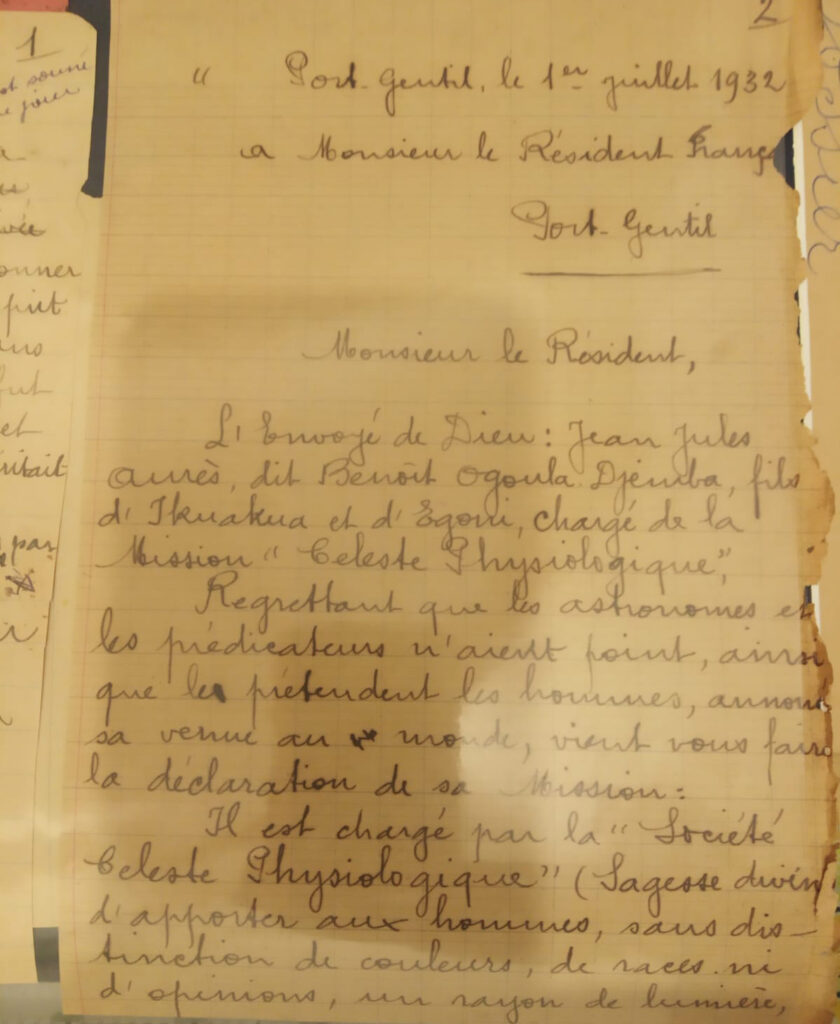 2
" Port-Gentil, le 1er juillet 1932
a Monsieur le Résident Franç
Port-Gentil
Monsieur le Résident,
L'Envoyé de Dieu : Jean Jules
aurès, dit Benoît Ogoula Djemba, fils
d'Ikuakua et d'Egoni, chargé de la
Mission "Celeste Physiologique",
Regrettant que les astronomes et
les prédicateurs n'aient point, ainsi
que le prétendent les hommes, annoncé
sa venue au monde, vient vous faire
la déclaration de sa Mission :
Il est chargé par la "Société
Celeste Physiologique" (Sagesse divin
d'apporter aux hommes, sans dis-
tinction de couleurs, de races ni
d'opinions, un rayon de lumière,
1
onner
fut
et
par